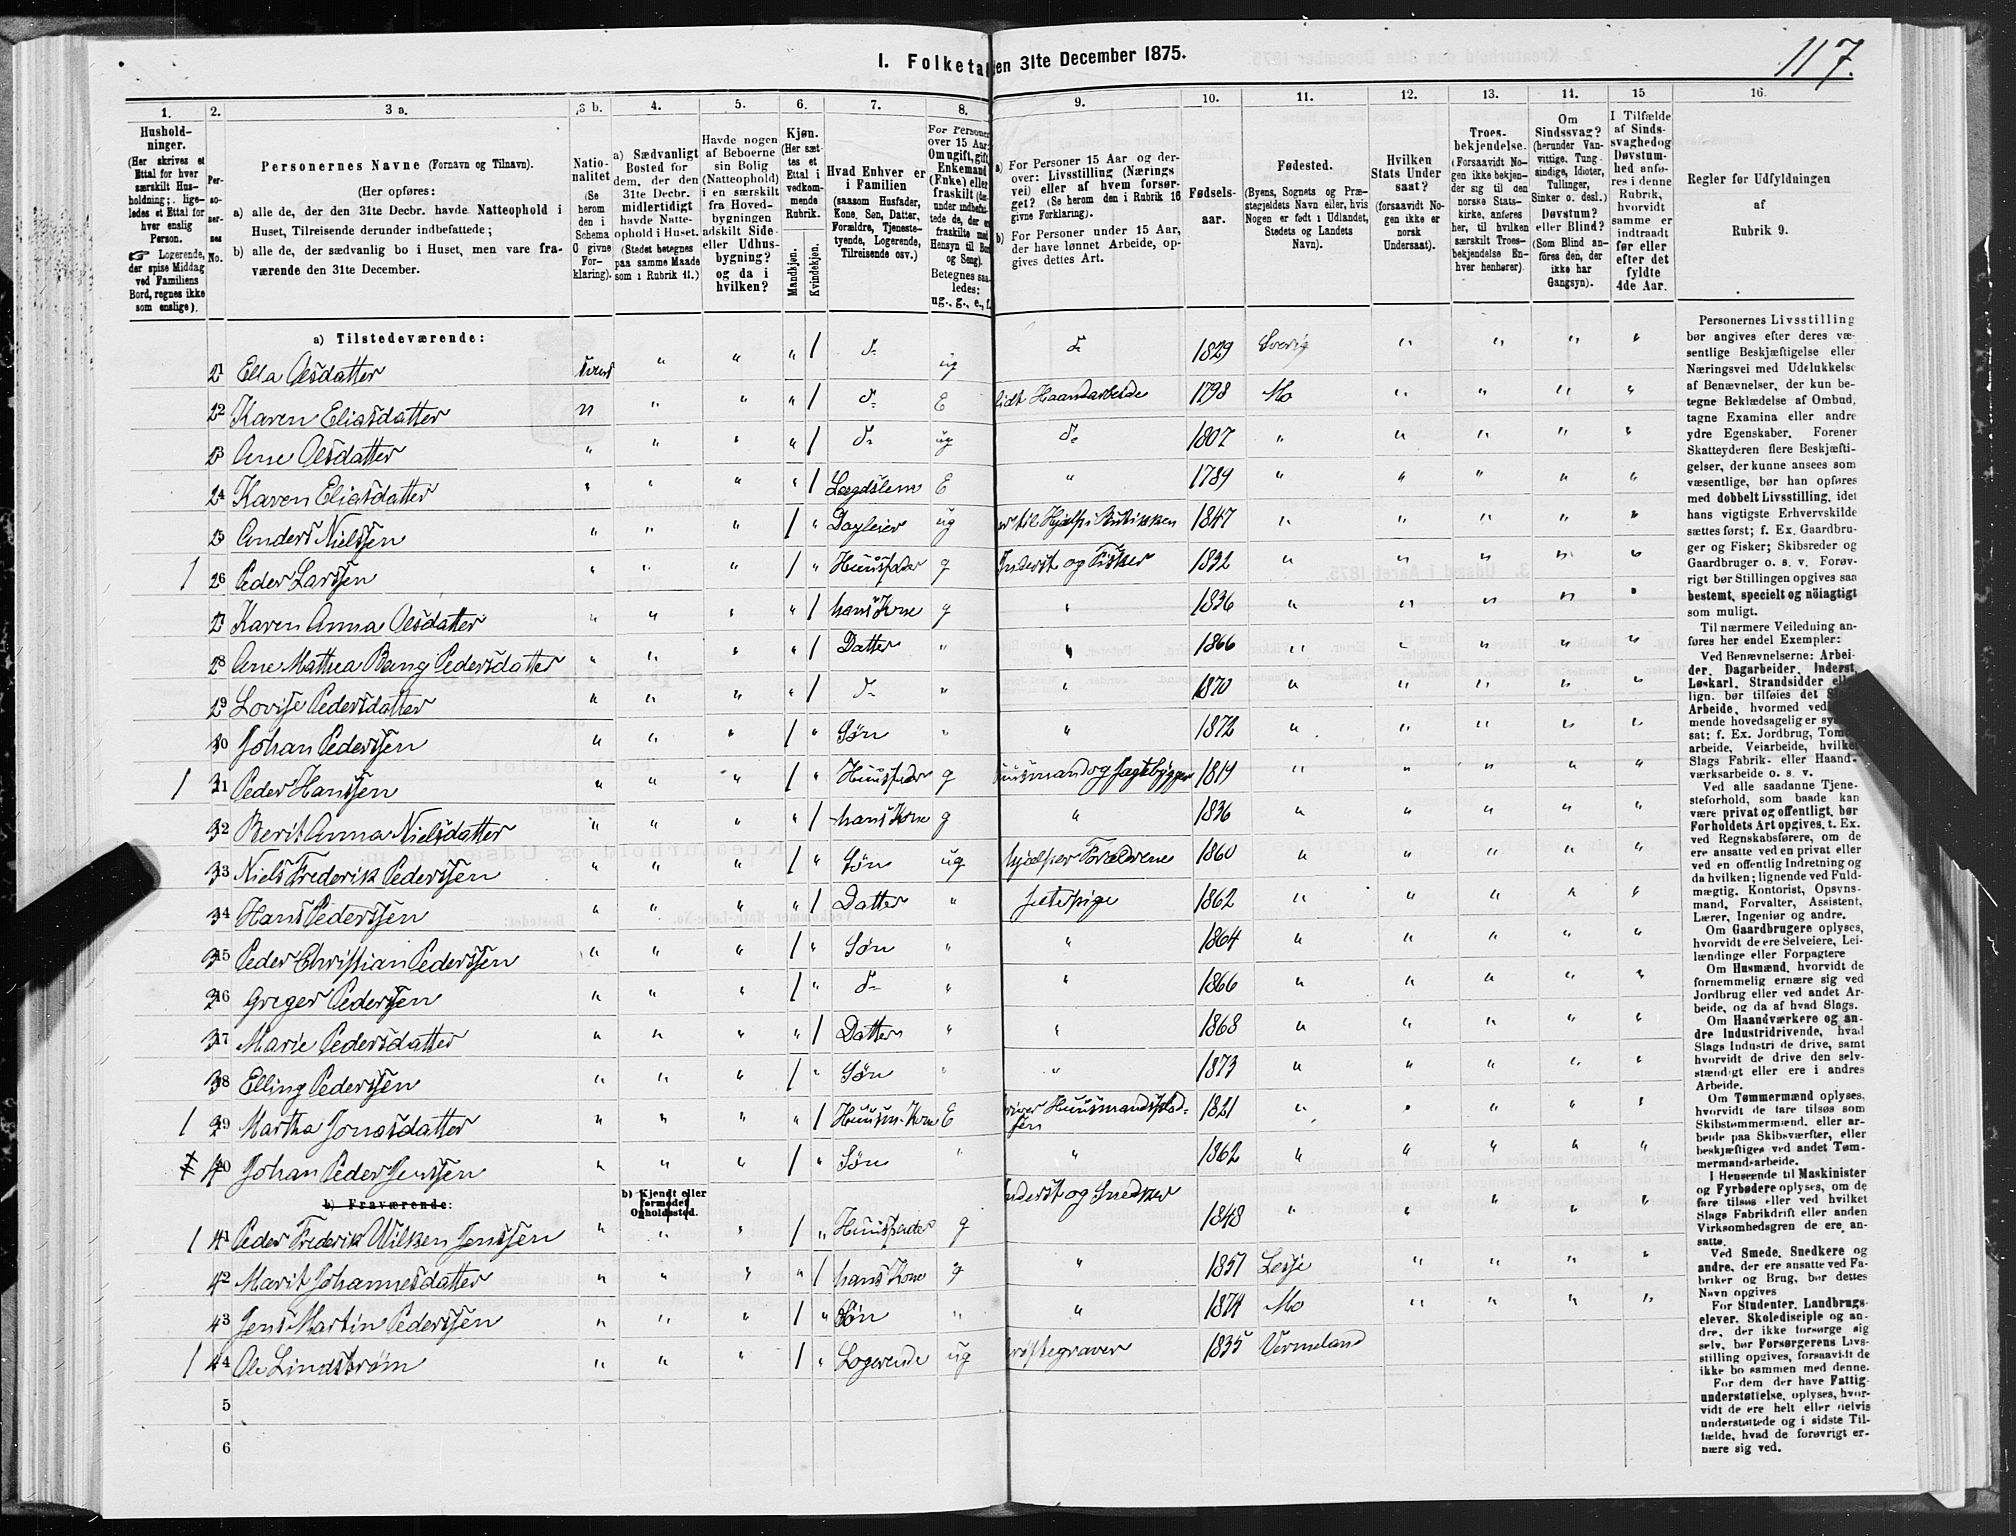 117.
I. Folketal den 31te December 1875.
1. 2. 3 a. 3 b. 4. 5. 6. 7. 8. 9. 10. 11. 12. 13. 14. 15 16.
Husholdninger.
(Her skrives et Ettal for hver særskilt Husholdning; ligeledes et Ettal for hver enslig Person.
☞ Logerende, der spise Middag ved Familiens Bord, regnes ikke som enslige).
Personernes No.
Personernes Navne (Fornavn og Tilnavn).
(Her opføres:
a) alle de, der den 31te Decbr. havde Natteophold i Huset, Tilreisende derunder indbefattede;
b) alle de, der sædvanlig bo i Huset, men vare fraværende den 31te December.
Nationalitet
(Se herom den i Schema O givne Forklaring).
a) Sædvanligt Bosted for dem, der den 31te Decbr. midlertidigt havde Natteophold i Huset.
(Stedet betegnes paa samme Maade som i Rubrik 11.)
Havde nogen af Beboerne sin Bolig (Natteophold) i en særskilt fra Hovedbygningen adskilt Side- eller Udhusbygning? og da i hvilken?
Kjøn.
(Her sættes et Ettal i vedkommende Rubrik.
Mandkjøn. Kvindekjøn.
Hvad Enhver er i Familien
(saasom Husfader, Kone, Søn, Datter, Forældre, Tjenestetyende, Logerende, Tilreisende osv.)
For Personer over 15 Aar: Om ugift, gift, Enkemand (Enke) eller fraskilt
Betegnes saaledes: ug., g., e., f.
a) For Personer 15 Aar og derover: Livsstilling (Næringsvei) eller af hvem forsørget? (Se herom den i Rubrik 16 givne Forklaring).
b) For Personer under 15 Aar, der have lønnet Arbeide, opgives dettes Art.
Fødselsaar.
Fødested.
(Byens, Sognets og Præstegjeldets Navn eller, hvis Nogen er født i Udlandet, Stedets og Landets Navn).
Hvilken Stats Undersaat?
(forsaavidt Nogen ikke er norsk Undersaat).
Troesbekjendelse.
(Forsaavidt Nogen ikke bekjender sig til den norske Statskirke, anføres her, til hvilken særskilt Troesbekjendelse Enhver henhører).
Om Sindssvag?
(herunder Vanvittige, Tungsindige, Idioter, Tullinger, Sinker o. desl.)
Døvstum? eller Blind?
(Som Blind anføres den, der ikke har Gangsyn).
I Tilfælde af Sindssvaghed og Døvstumhed anføres i denne Rubrik, hvorvidt samme er indtraadt før eller efter det fyldte 4de Aar.
Regler for Udfyldningen af Rubrik 9.
a) Tilstedeværende:
21 Ella Olsdatter " " " 1 d- ug d- 1829 Sverig " " " "
22 Karen Eliasdatter n " " " 1 d- E lidt Haandarbeide 1798 Mo " " " "
23 Ane Olsdatter " " " " 1 d- ug d- 1807 " " " " "
24 Karen Eliasdatter " " " " 1 Lægdslem E " 1789 " " " " "
25 Anders Nielssen " " " 1 " Dagleier ug er til Hjælp i Butikken 1847 " " " " "
1 26 Peder Larssen " " " 1 " Huusfader g Inderst og Fisker 1832 " " " " "
27 Karen Anna Olsdatter " " " " 1 hans Kone g " 1836 " " " " "
28 Ane Mathea Bang Pedersdatter " " " " 1 Datter " " 1866 " " " " "
29 Lovise Pedersdatter " " " " 1 d- " " 1870 " " " " "
30 Johan Pederssen " " " 1 " Søn " " 1872 " " " " "
1 31 Peder Hanssen " " " 1 " Huusfader g Huusmand og Jagtebygger 1819 " " " " "
32 Berit Anna Nielsdatter " " " " 1 hans Kone g " 1836 " " " " "
33 Niels Frederik Pederssen " " " 1 " Søn ug hjælper Forældrene 1860 " " " " "
34 Hans Pederssen " " " " 1 Datter " Jetepige 1862 " " " " "
35 Peder Christian Pederssen " " " 1 " Søn " " 1864 " " " " "
36 Greger Pederssen " " " 1 " d- " " 1866 " " " " "
37 Marie Pedersdatter " " " " 1 Datter " " 1868 " " " " "
38 Elling Pederssen " " " 1 " Søn " " 1873 " " " " "
1 39 Martha Jonasdatter " " " " 1 Huusm. Kone E driver Huusmandspladsen 1821 " " " " "
40 Johan Peder Jenssen " " " 1 " Søn " " 1862 " " " " "
b) Fraværende:
b) Kjendt eller formodet Opholdssted.
1 41 Peder Frederik Wilken Jenssen " " " 1 " Huusfader g Inderst og Snedker 1848 " " " " "
42 Marit Johannesdatter " " " " 1 hans Kone g " 1851 Lesje " " " "
43 Jens Martin Pederssen " " " 1 " Søn " " 1874 Mo " " " "
1 44 Ole Lindstrøm " " " 1 " Logerende ug Grøftegraver 1835 Vermeland
5
6
Personernes Livsstilling bør angives efter deres væsentlige Beskjæftigelse eller Næringsvei med Udelukkelse af Benævnelser, der kun betegne Beklædelse af Ombud, tagne Examina eller andre ydre Egenskaber. Forener Skatteyderen flere Beskjæftigelser, der kunne ansees som væsentlige, bør han opføres med dobbelt Livsstilling, idet hans vigtigste Erhvervskilde sættes først; f. Ex. Gaardbruger og Fisker; Skibsreder og Gaardbruger o. s. v. Forøvrigt bør Stillingen opgives saa bestemt, specielt og nöiagtigt som muligt.
Til nærmere Veiledning anføres her endel Exempler:
Ved Benævnelserne: Arbeider, Dagarbeider, Inderst, Løskarl, Strandsidder eller lign. bør tilføies det Slags Arbeide, hvormed vedkommende hovedsagelig er syssat; f. Ex. Jordbrug, Tomtearbeide, Veiarbeide, hvilket Slags Fabrik- eller Haandværksarbeide o. s. v.
Ved alle saadanne Tjenesteforhold, som baade kan være privat og offentligt, bør Forholdets Art opgives, t. Ex. ved Regnskabsførere, om de ere ansatte ved en privat eller ved en offentlig Indretning og da hvilken; lignende ved Fuldmægtig, Kontorist, Opsynsmand, Forvalter, Assistent, Lærer, Ingeniør og andre.
Om Gaardbrugere oplyses, hvorvidt de ere Selveiere, Leilændinge eller Forpagtere
Om Husmænd, hvorvidt de fornemmelig ernære sig ved Jordbrug eller ved andet Arbeide, og da af hvad Slags.
Om Haandværkere og andre Industridrivende, hvad Slags Industri de drive, samt hvorvidt de drive den selvstændigt eller ere i andres Arbeide.
Om Tømmermænd oplyses, hvorvidt de fare tilsøs som Skibstømmermænd, eller arbeide paa Skibsværfter, eller beskjæftiges ved andet Tømmermandsarbeide.
I Henseende til Maskinister og Fyrbødere oplyses, om de fare tilsøs eller ved hvilket Slags Fabrikdrift eller anden Virksomhedsgren de ere ansatte.
Ved Smede, Snedkere og andre, der ere ansatte ved Fabriker og Brug, bør dettes Navn opgives
For Studenter, Landbrugselever, Skoledisciple og andre, der ikke forsørge sig selv, bør Forsørgerens Livsstilling opgives, forsaavidt de ikke bo sammen med denne.
For dem, der have Fattigunderstøttelse, oplyses, hvorvidt de ere helt eller delvis understøttede og i sidste Tilfælde, hvad de forøvrigt ernære sig ved.